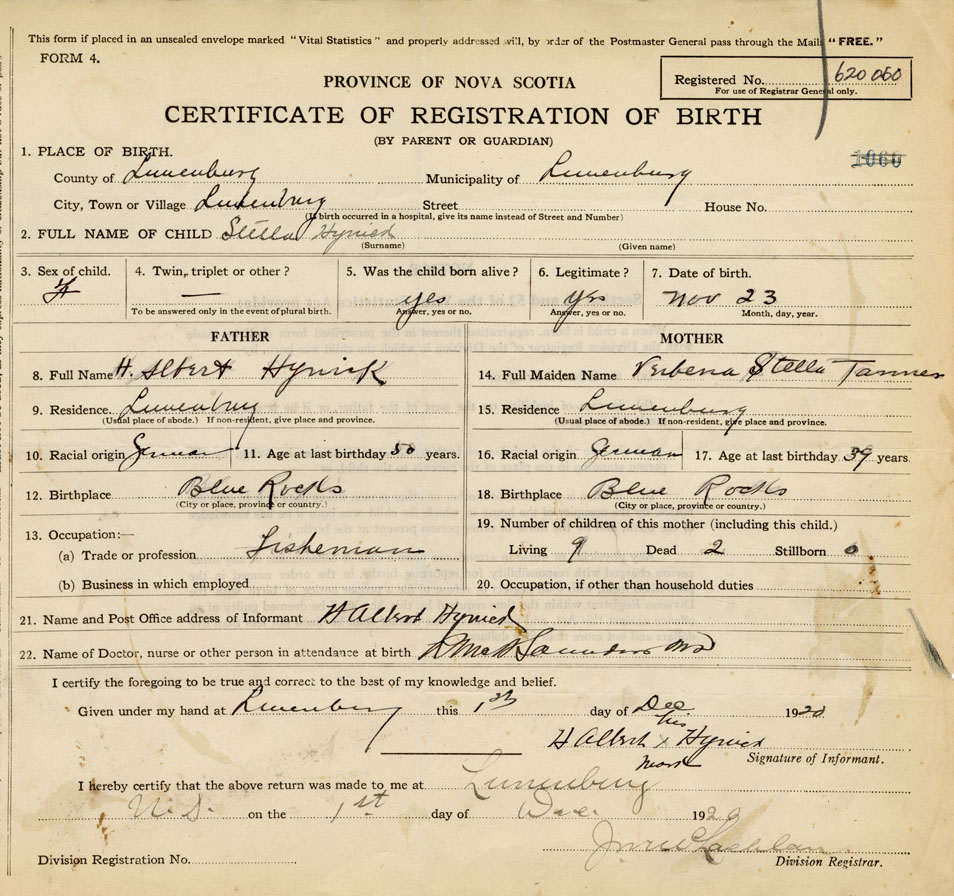 This form if placed in an unsealed envelope marked "Vital Statistics" and properly addressed will, by order of the Postmaster General pass through the Mails "FREE."
FORM 4.
Registered No. 620060
For use of Registrar General only.
PROVINCE OF NOVA SCOTIA
CERTIFICATE OF REGISTRATION OF BIRTH
(BY PARENT OR GUARDIAN)
1060
1. PLACE OF BIRTH.
County of Lunenburg Municipality of Lunenburg
City, Town or Village Lunenburg Street House No.
(If birth occurred in a hospital, give its name instead of Street and Number)
2. FULL NAME OF CHILD Stella Hynick
(Surname) (Given name)
3. Sex of child. 4. Twin, triplet or other? 5. Was the child born alive? 6. Legitimate? 7. Date of birth.
F — yes yes Nov 23
To be answered only in the event of plural birth. Answer, yes or no. Answer, yes or no. Month, day, year.
FATHER MOTHER
8. Full Name H. Albert Hynick 14. Full Maiden Name Verbena Stella Tanner
9. Residence. Lunenburg 15. Residence Lunenburg
(Usual place of abode.) If non-resident, give place and province. (Usual place of abode.) If non-resident, give place and province.
10. Racial origin German 11. Age at last birthday 50 years. 16. Racial origin German 17. Age at last birthday 39 years.
12. Birthplace Blue Rocks 18. Birthplace Blue Rocks
(City or place, province or country.) (City or place, province or country.)
13. Occupation:— 19. Number of children of this mother (including this child.)
(a) Trade or profession Fisherman Living 9 Dead 2 Stillborn 0
(b) Business in which employed 20. Occupation, if other than household duties
21. Name and Post Office address of Informant H Albert Hynick
22. Name of Doctor, nurse or other person in attendance at birth Saunders MD
I certify the foregoing to be true and correct to the best of my knowledge and belief.
Given under my hand at Lunenburg this 1st day of Dec 1920
his
H Albert x Hynick
mark
Signature of Informant.
I hereby certify that the above return was made to me at Lunenburg
N. S. on the 1st day of Dec. 1920
Division Registration No. Division Registrar.